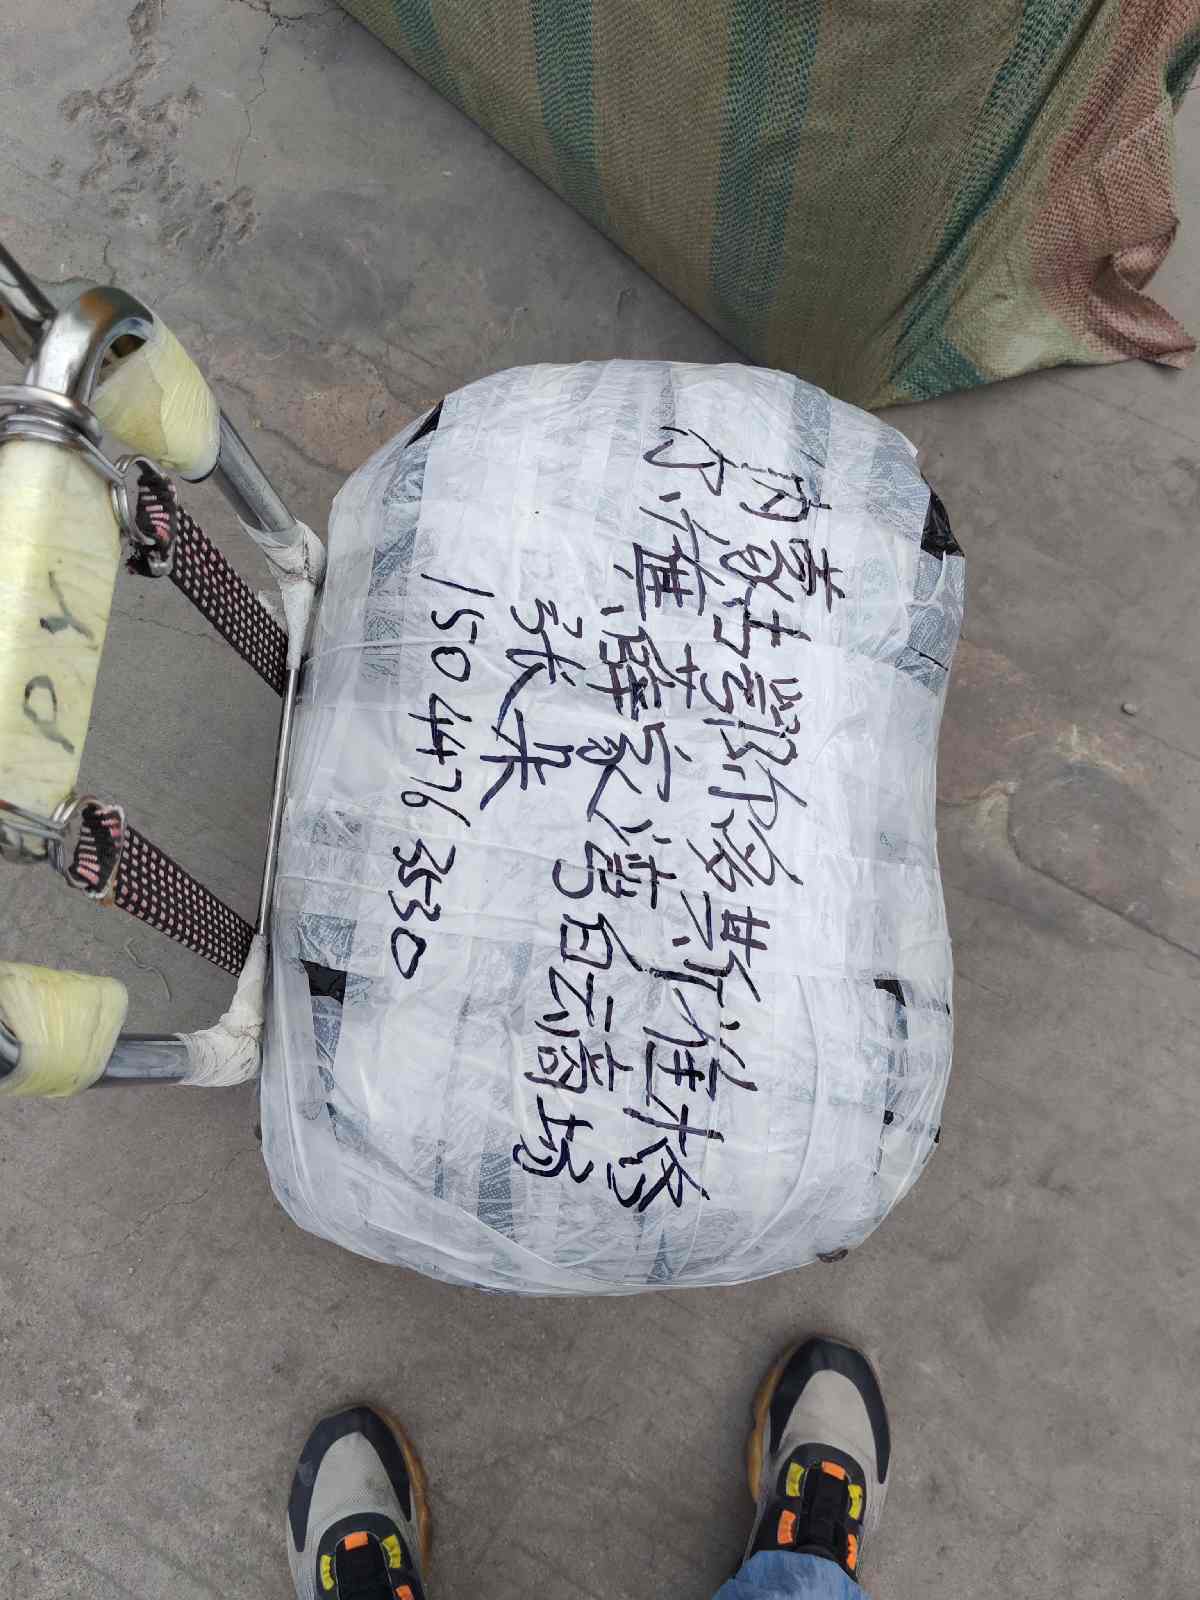 内蒙古鄂尔多斯市准格
尔薛家湾白云商场
张朵
150 4476 3530